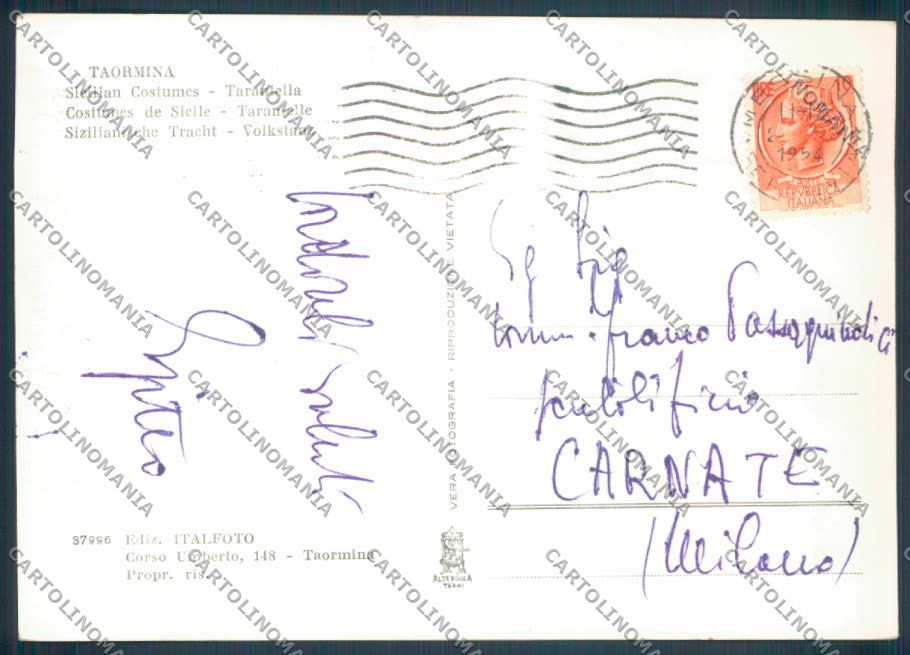 TAORMINA
Sicilian Costumes - Tarantella
Costumes de Sicile - Tarantelle
Sizilianische Tracht - Volkstanz
LIRE 10
1954
POSTE
REPVBBLICA
ITALIANA
Cordiali saluti
VERA FOTOGRAFIA - RIPRODUZIONE VIETATA
Eg Sig
Comm. Franco Passaquindici
CARNATE
(Milano)
37996 Ediz. ITALFOTO
Corso Umberto, 148 - Taormina
Propr. ris.
ALTEROCCA
TERNI
CARTOLINOMANIA